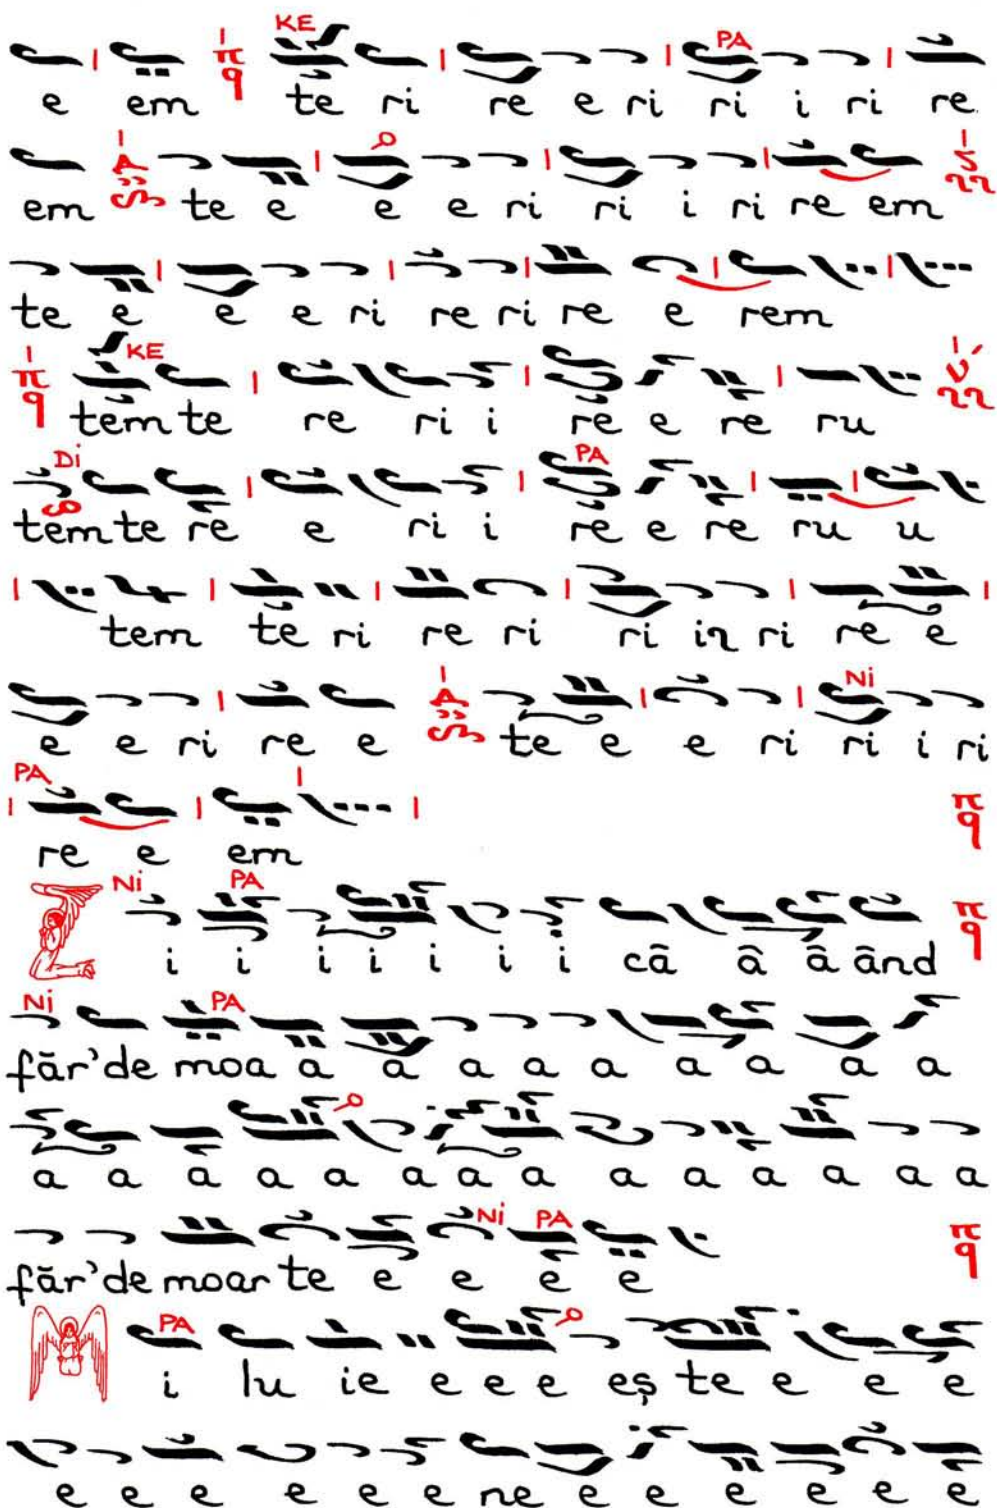 KE PA
e em π q te ri re e ri ri i ri re
em te e e e ri ri i ri re em
te e e e ri re ri re e rem
KE
π q tem te re ri i re e re ru
Di PA
tem te re e ri i re e re ru u
tem te ri re ri ri in ri re e
Ni
e e ri re e te e e ri ri i ri
PA
re e em π q
Ni PA
i i i i i i i câ â â ând π q
Ni PA
făr'de moa a a a a a a a a a
a a a a a a a a a a a a a a
Ni PA
făr'de moar te e e e e π q
PA
M i lu ie e e e eș te e e e
e e e e e e ne e e e e e e